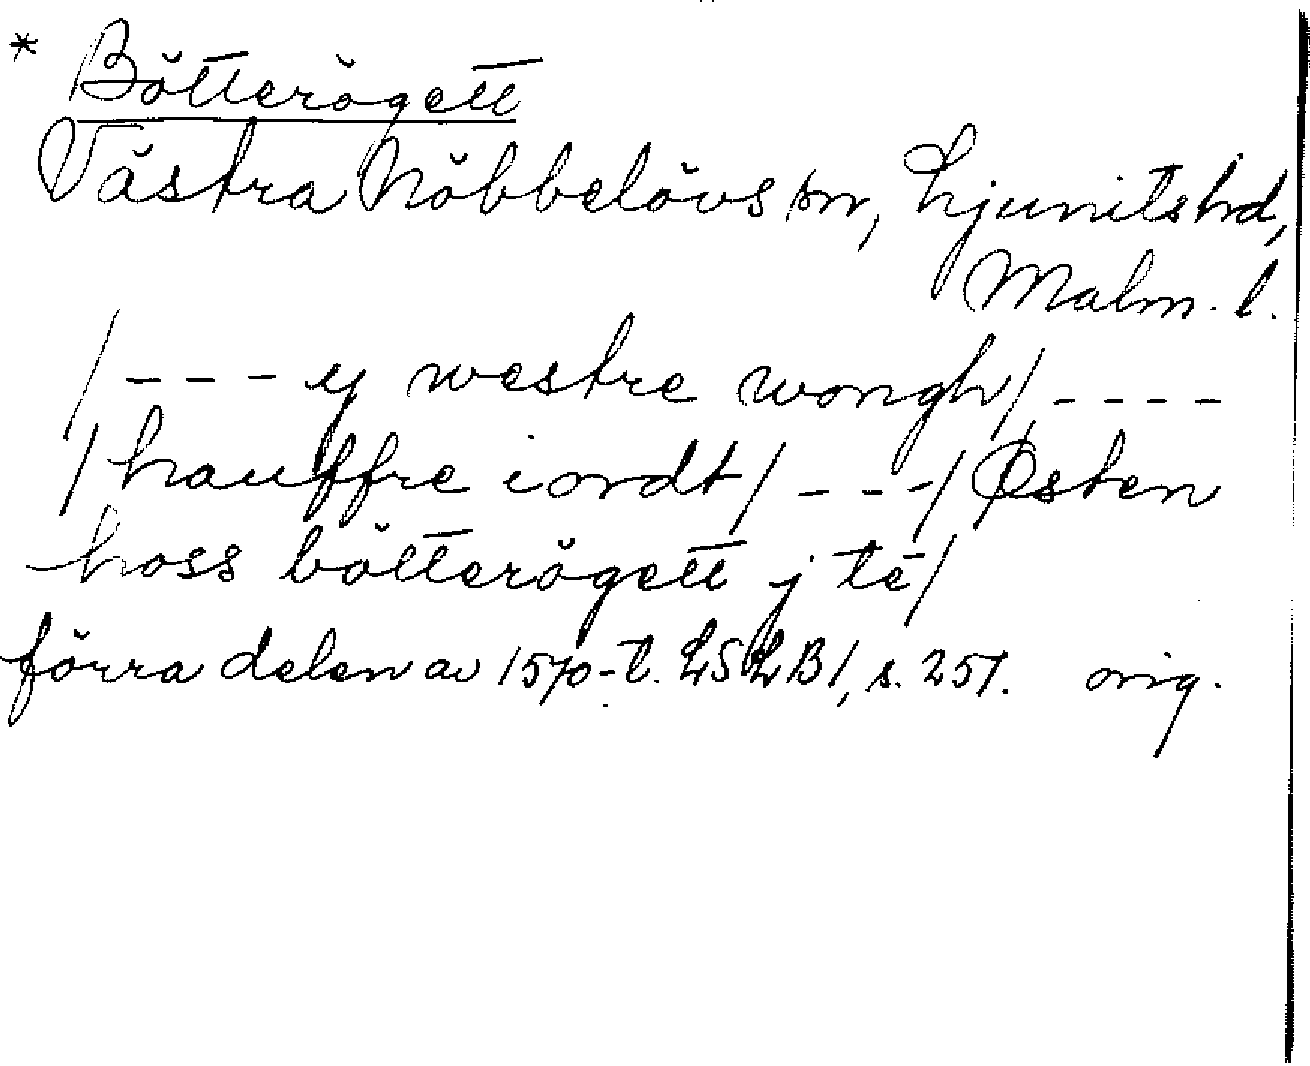 * Bötterögett
Västra Nöbbelövs sn, Ljunits hd,
Malm. l.
/ - - - y westre wongh / - - - -
/ hauffre iordt / - - - / Østen
hoss bötterögett j te /
förra delen av 1570-t. LSLB1, s. 251. orig.